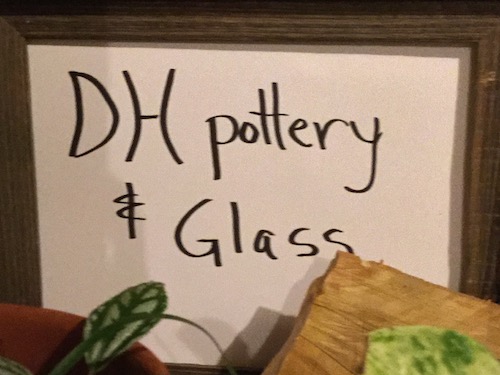 DH pottery
& Glass